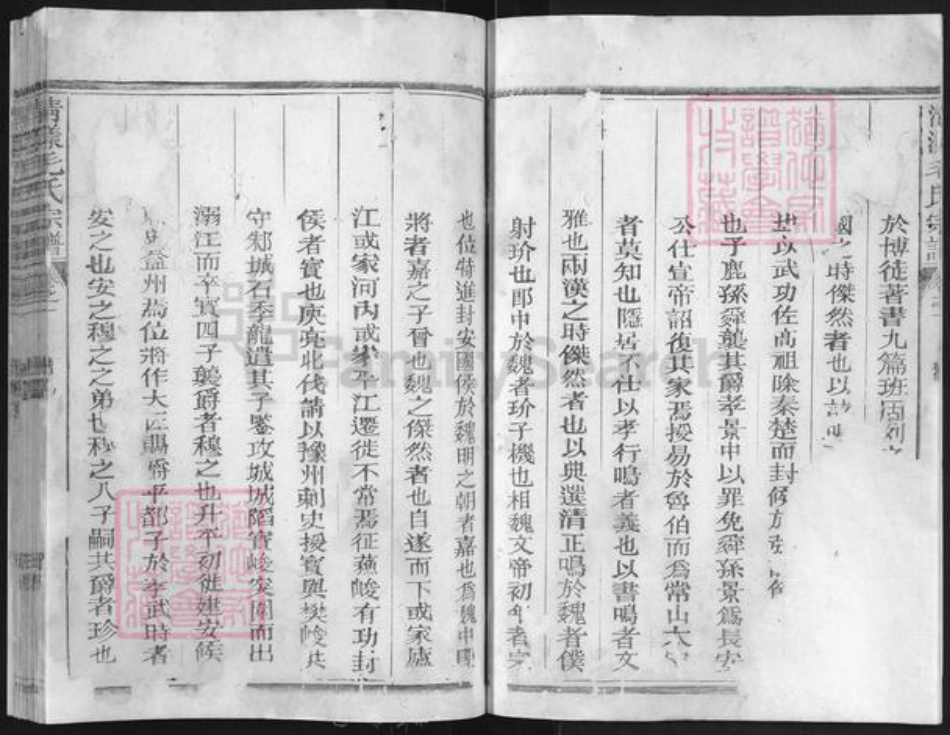 於博徒著書九篇班固列
國之時傑然者也以
以武功佐高祖除秦楚而封
也子鹿孫舜襲其爵孝景中以罪免舜孫景爲長安
公仕宣帝詔復其家焉授易於魯伯而爲常山太
者莫知也隱居不仕以孝行鳴者義也以書鳴者文
雅也兩漢之時傑然者也以典選清正鳴於魏者僕
射玠也郎中於魏者玠子機也相魏文帝初
也位特進封安國侯於魏明之朝者嘉也爲魏中
將者嘉之子晉也魏之傑然者也自遂而下或家廬
江或家河內或 江遷徙不常焉征蘇峻有功封
侯者寶也庾亮北伐請以豫州刺史授寶與樊峻共
守邾城石季龍遣其子鑒攻城城陷寶峻突圍而出
溺江而卒寶四子襲爵者穆之也升平初徙建安侯
益州焉位將作大匠 於孝武時者
安之也安之穆之之弟也穆之八子嗣其爵者珍也
清漾毛氏宗譜
毛氏宗譜
FamilySearch